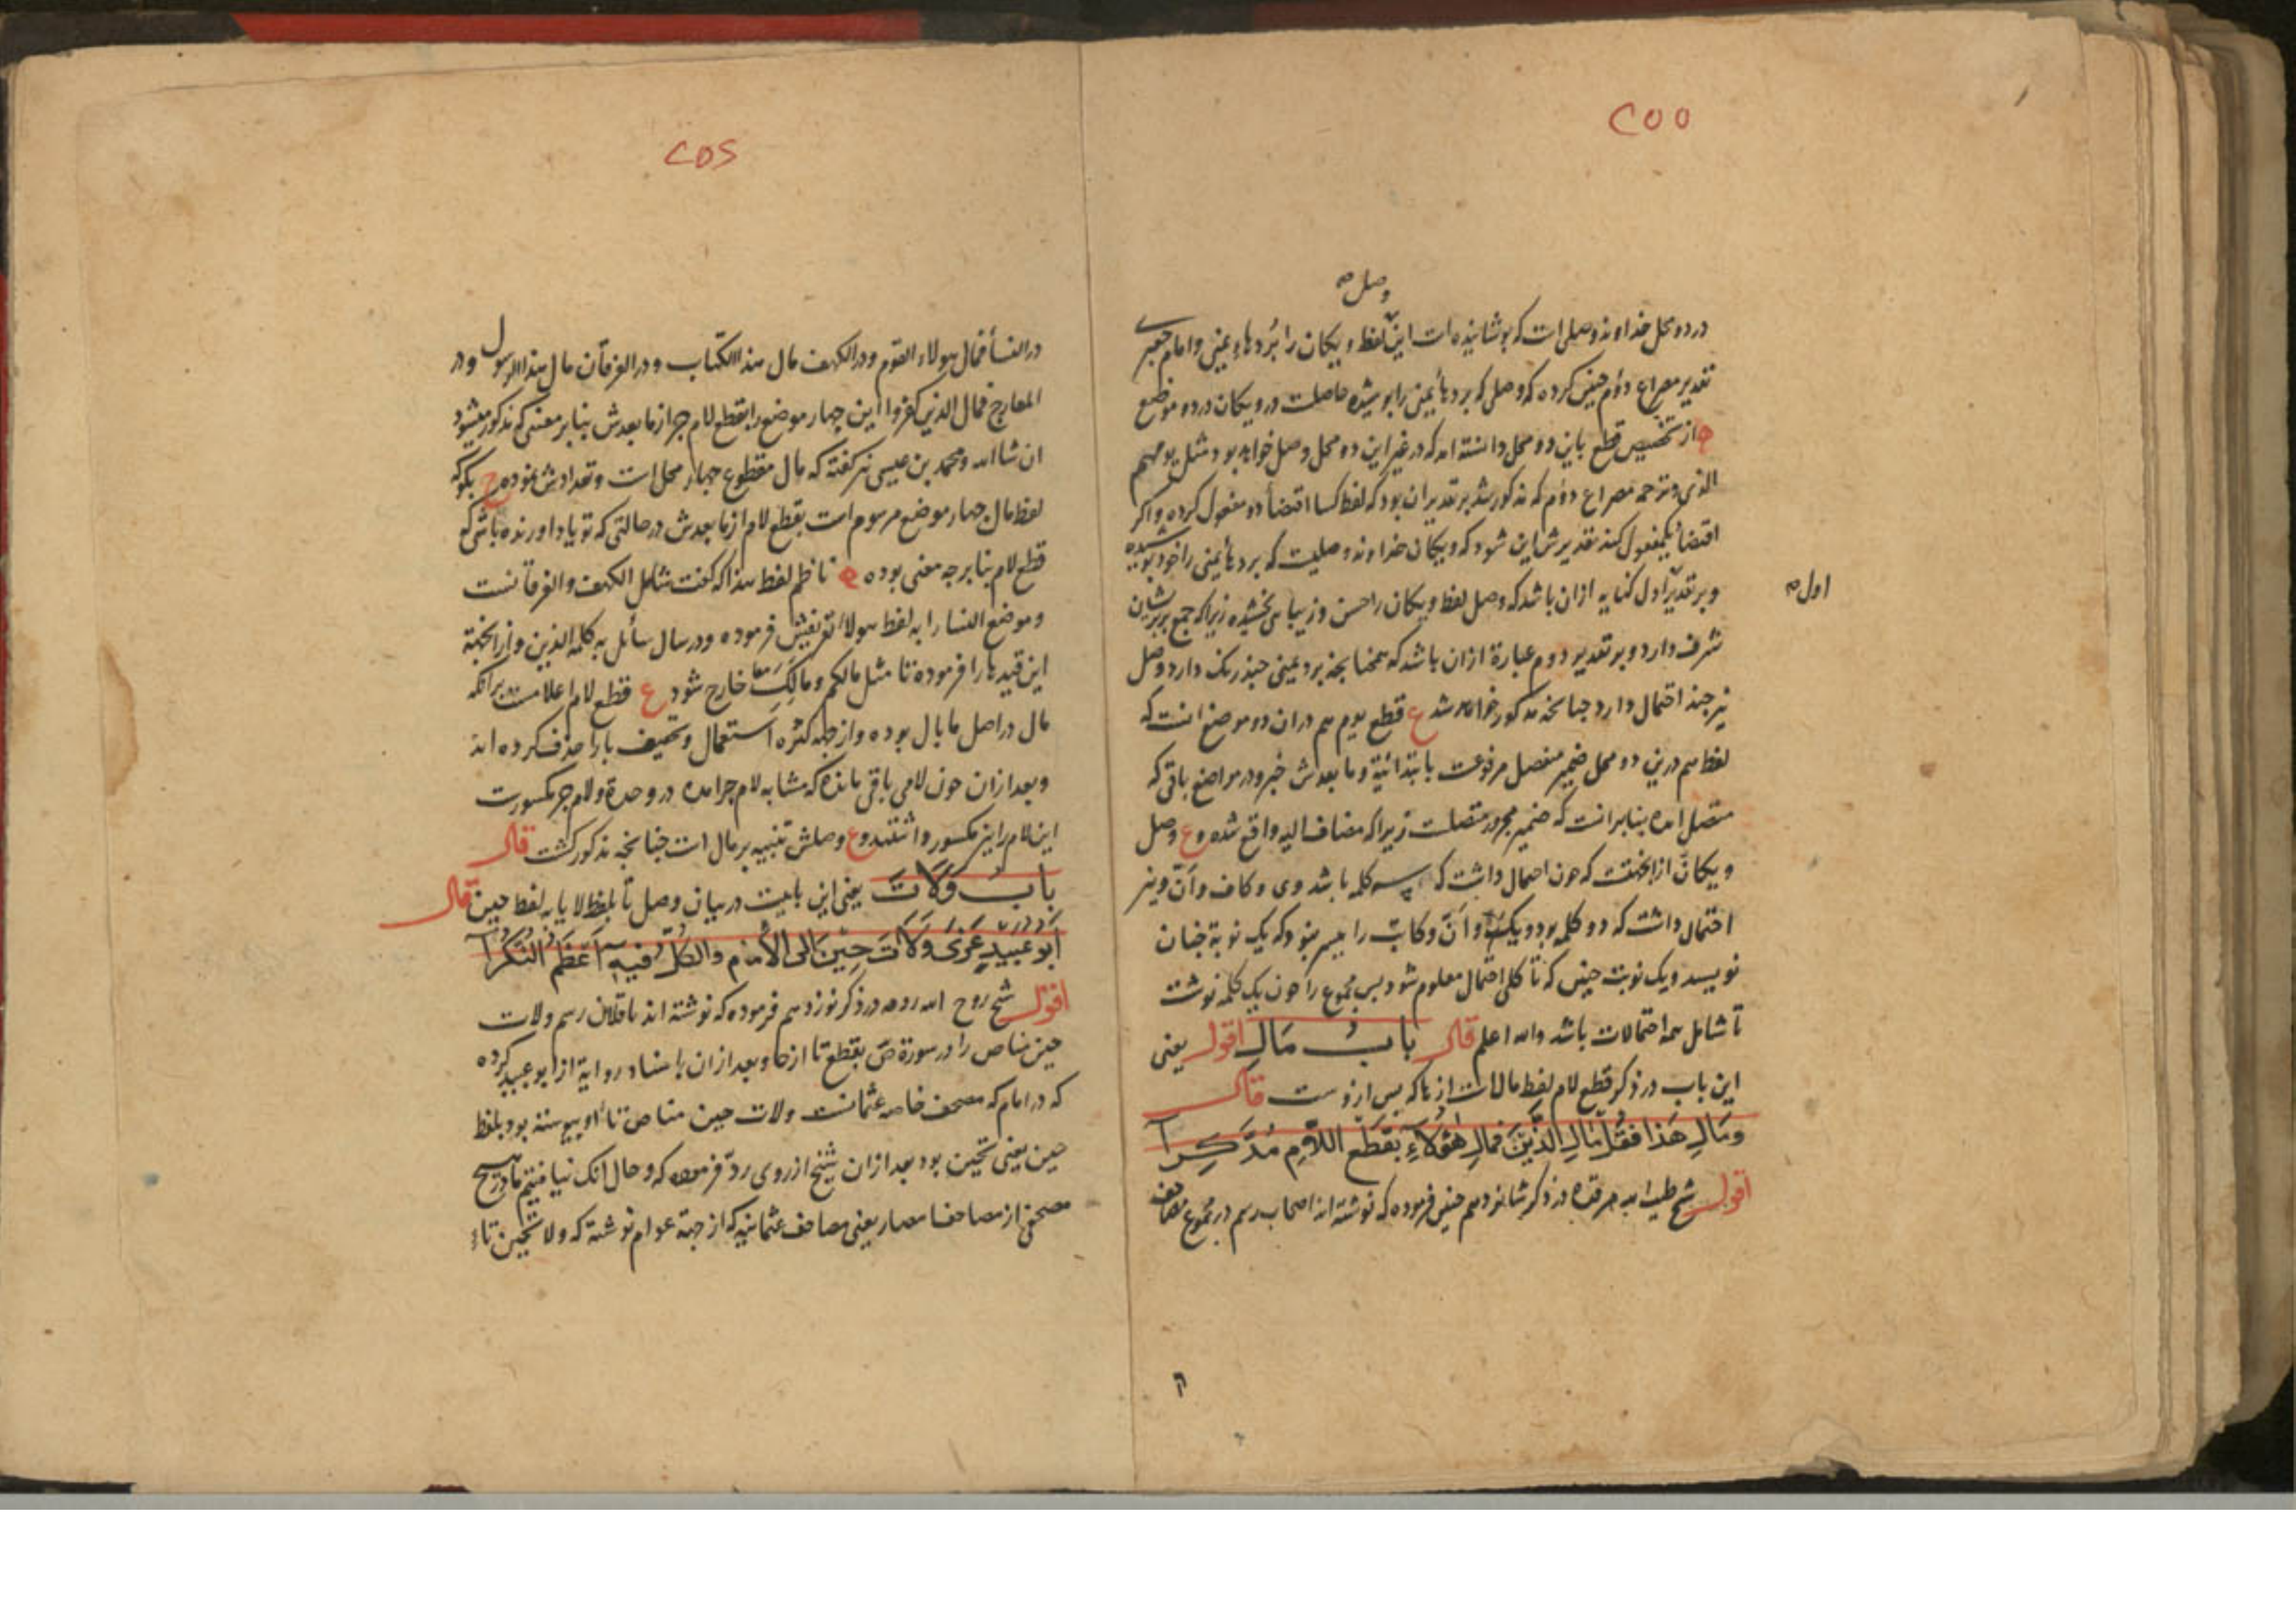 ۲۵۵
وصل صح
در دو محل خداوند وصلی است که پوشانیده است این لفظ ویکان را بُردهاء یمنی و امام جعبری
تقدیر مصراع دوم چنین کرده که وصلی که بردهاء یمنی را پوشیده حاصلست در ویکان در دو موضع
از تخصیص قطع باین دو محل دانسته اند که در غیر این دو محل وصل خواهد بود مثل یومهم
الذی و ترجمه مصراع دوم که مذکور شد بر تقدیر ان بود که لفظ کسا اقتضاء دو مفعول کرده و اکر
اقتضاء یکمفعول کند تقدیرش این شود که ویکان خداوند وصلیست که بردهاء یمنی را خود پوشیده
و بر تقدیر اول کنایه ازان باشد که وصل لفظ ویکان را حسن و زیبایی بخشیده زیرا که جمع بر پریشان
اول صح
شرف دارد و بر تقدیر دوم عبارة ازان باشد که همچنانچه برد یمنی چند رنک دارد وصل
نیز چند احتمال دارد چنانچه مذکور خواهد شد ع قطع یوم هم دران دو موضع انست که
لفظ هم درین دو محل ضمیر منفصل مرفوعست بابتدائیة و ما بعدش خبر و در مواضع باقی که
متصل امده بنابر انست که ضمیر مجرور متصلست زیرا که مضاف الیه واقع شده و ع وصل
ویکانّ از انجهتست که چون احتمال داشت که سه کلمه باشد وی و کاف و أنّ و نیز
احتمال داشت که دو کلمه بود ویک و أنّ و کانّ را میسر نبود که یک نوبة چنان
نویسد و یک نوبت چنین که تا کلی احتمال معلوم شود پس مجموع را چون یک کلمه نوشت
تا شامل همه احتمالات باشد والله اعلم قال بابُ مَالِ اقول یعنی
این باب در ذکر قطع لام لفظ مالست از ما که پس ازوست قال
وَمَالِ هَذا فقُل مَالِ الَّذِینَ فمالِ هٰؤلاءِ بقطع اللّامِ مُدَّکِرا
اقول شیخ طیب الله مرقده در ذکر شانزدهم چنین فرموده که نوشته اند اصحاب رسم در مجموع مصاحف
۲۵۶
در النساء فمال هولاء القوم و در الکهف مال هذا الکتاب و در الفرقان مال هذا الرسول و در
المعارج فمال الذین کفروا این چهار موضع را بقطع لام جر از ما بعدش بنا بر معنی که مذکور میشود
ان شاالله و محمد بن عیسی نیز گفته که مال مقطوع چهار محل است و تعدادش نموده ح بکو که
لفظ مال چهار موضع مرسوم است بقطع لام از ما بعدش در حالتی که تو یاد اورنده باشی که
قطع لام بنا بر چه معنی بوده ناظم لفظ هذا که گفت شامل الکهف و الفرقانست
و موضع النسا را به لفظ هولاء تعریفش فرموده و در سال سائل به کلمه الذین و از انجهة
این قیدها را فرموده تا مثل مالکم و مالَکَ خارج شود ع قطع لام اعلامست برانکه
مال در اصل ما بال بوده و از جهة کثرة استعمال و تخفیف با را حذف کرده اند
و بعد ازان چون لامی باقی مانده که مشابه لام جر امده در وحدة و لام جر مکسورست
این لام را نیز مکسور داشتند و ع وصلش تنبیه بر مال است چنانچه مذکور گشت قال
بابُ وَلَاتَ یعنی این بابیست در بیان وصل تا بلفظ لا یا به لفظ حین قال
أبو عبیدٍ عَزَی وَلَاتَ حِینَ الی الأمام والکلُّ فیه اَعْظَمَ النُّکُرا
اقول شیخ روح الله روحه در ذکر نوزدهم فرموده که نوشته اند ناقلان رسم ولات
حین مناص را در سورة ص بقطع تا از حا و بعد ازان باسناد روایة از ابو عبید کرده
که در امام که مصحف خاصه عثمانست ولات حین مناص تاء او پیوسته بود بلفظ
حین یعنی تحین بود بعد ازان شیخ از روی ردّ فرموده که و حال انک نیافتیم ما در هیچ
مصحفی از مصاحف امصار یعنی مصاحف عثمانیه که از جهة عوام نوشته که ولا تحین تاء